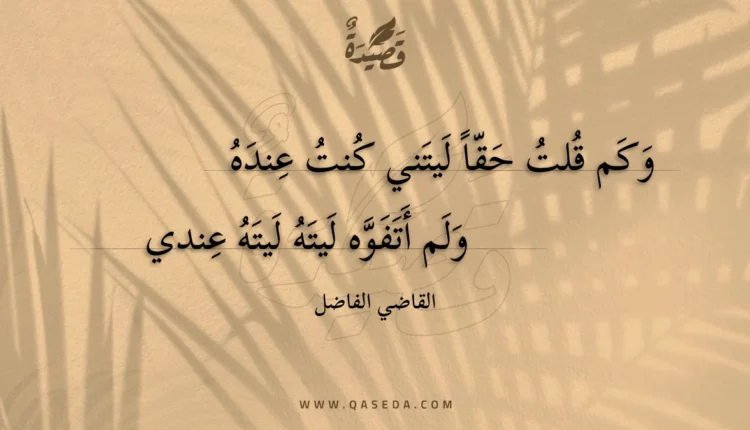 قَصِيْدَةٌ
وَكَم قُلتُ حَقّاً لَيتَني كُنتُ عِندَهُ
وَلَم أَتَفَوَّه لَيتَهُ لَيتَهُ عِندي
القاضي الفاضل
WWW.QASEDA.COM